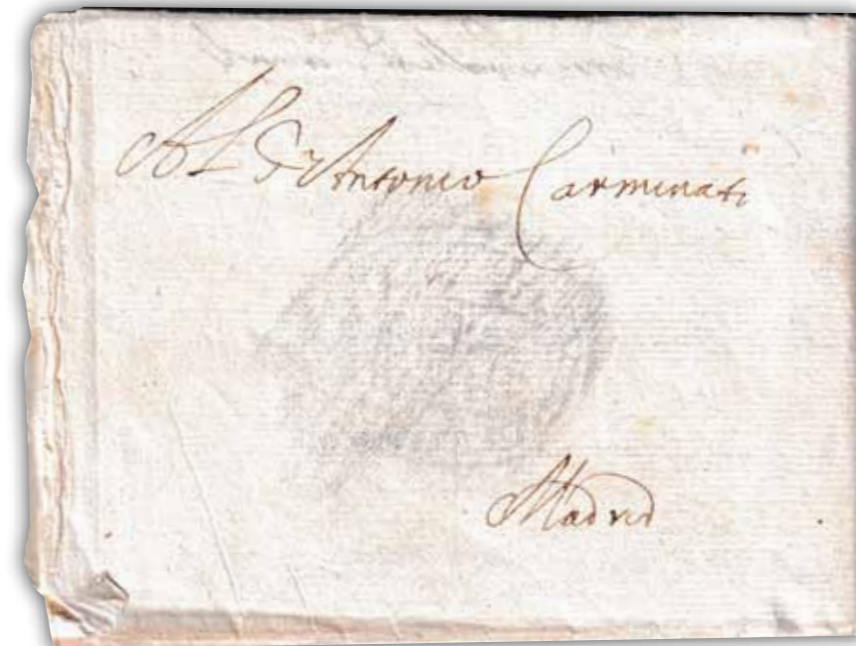 Al Sr Antonio Carminati
Madrid